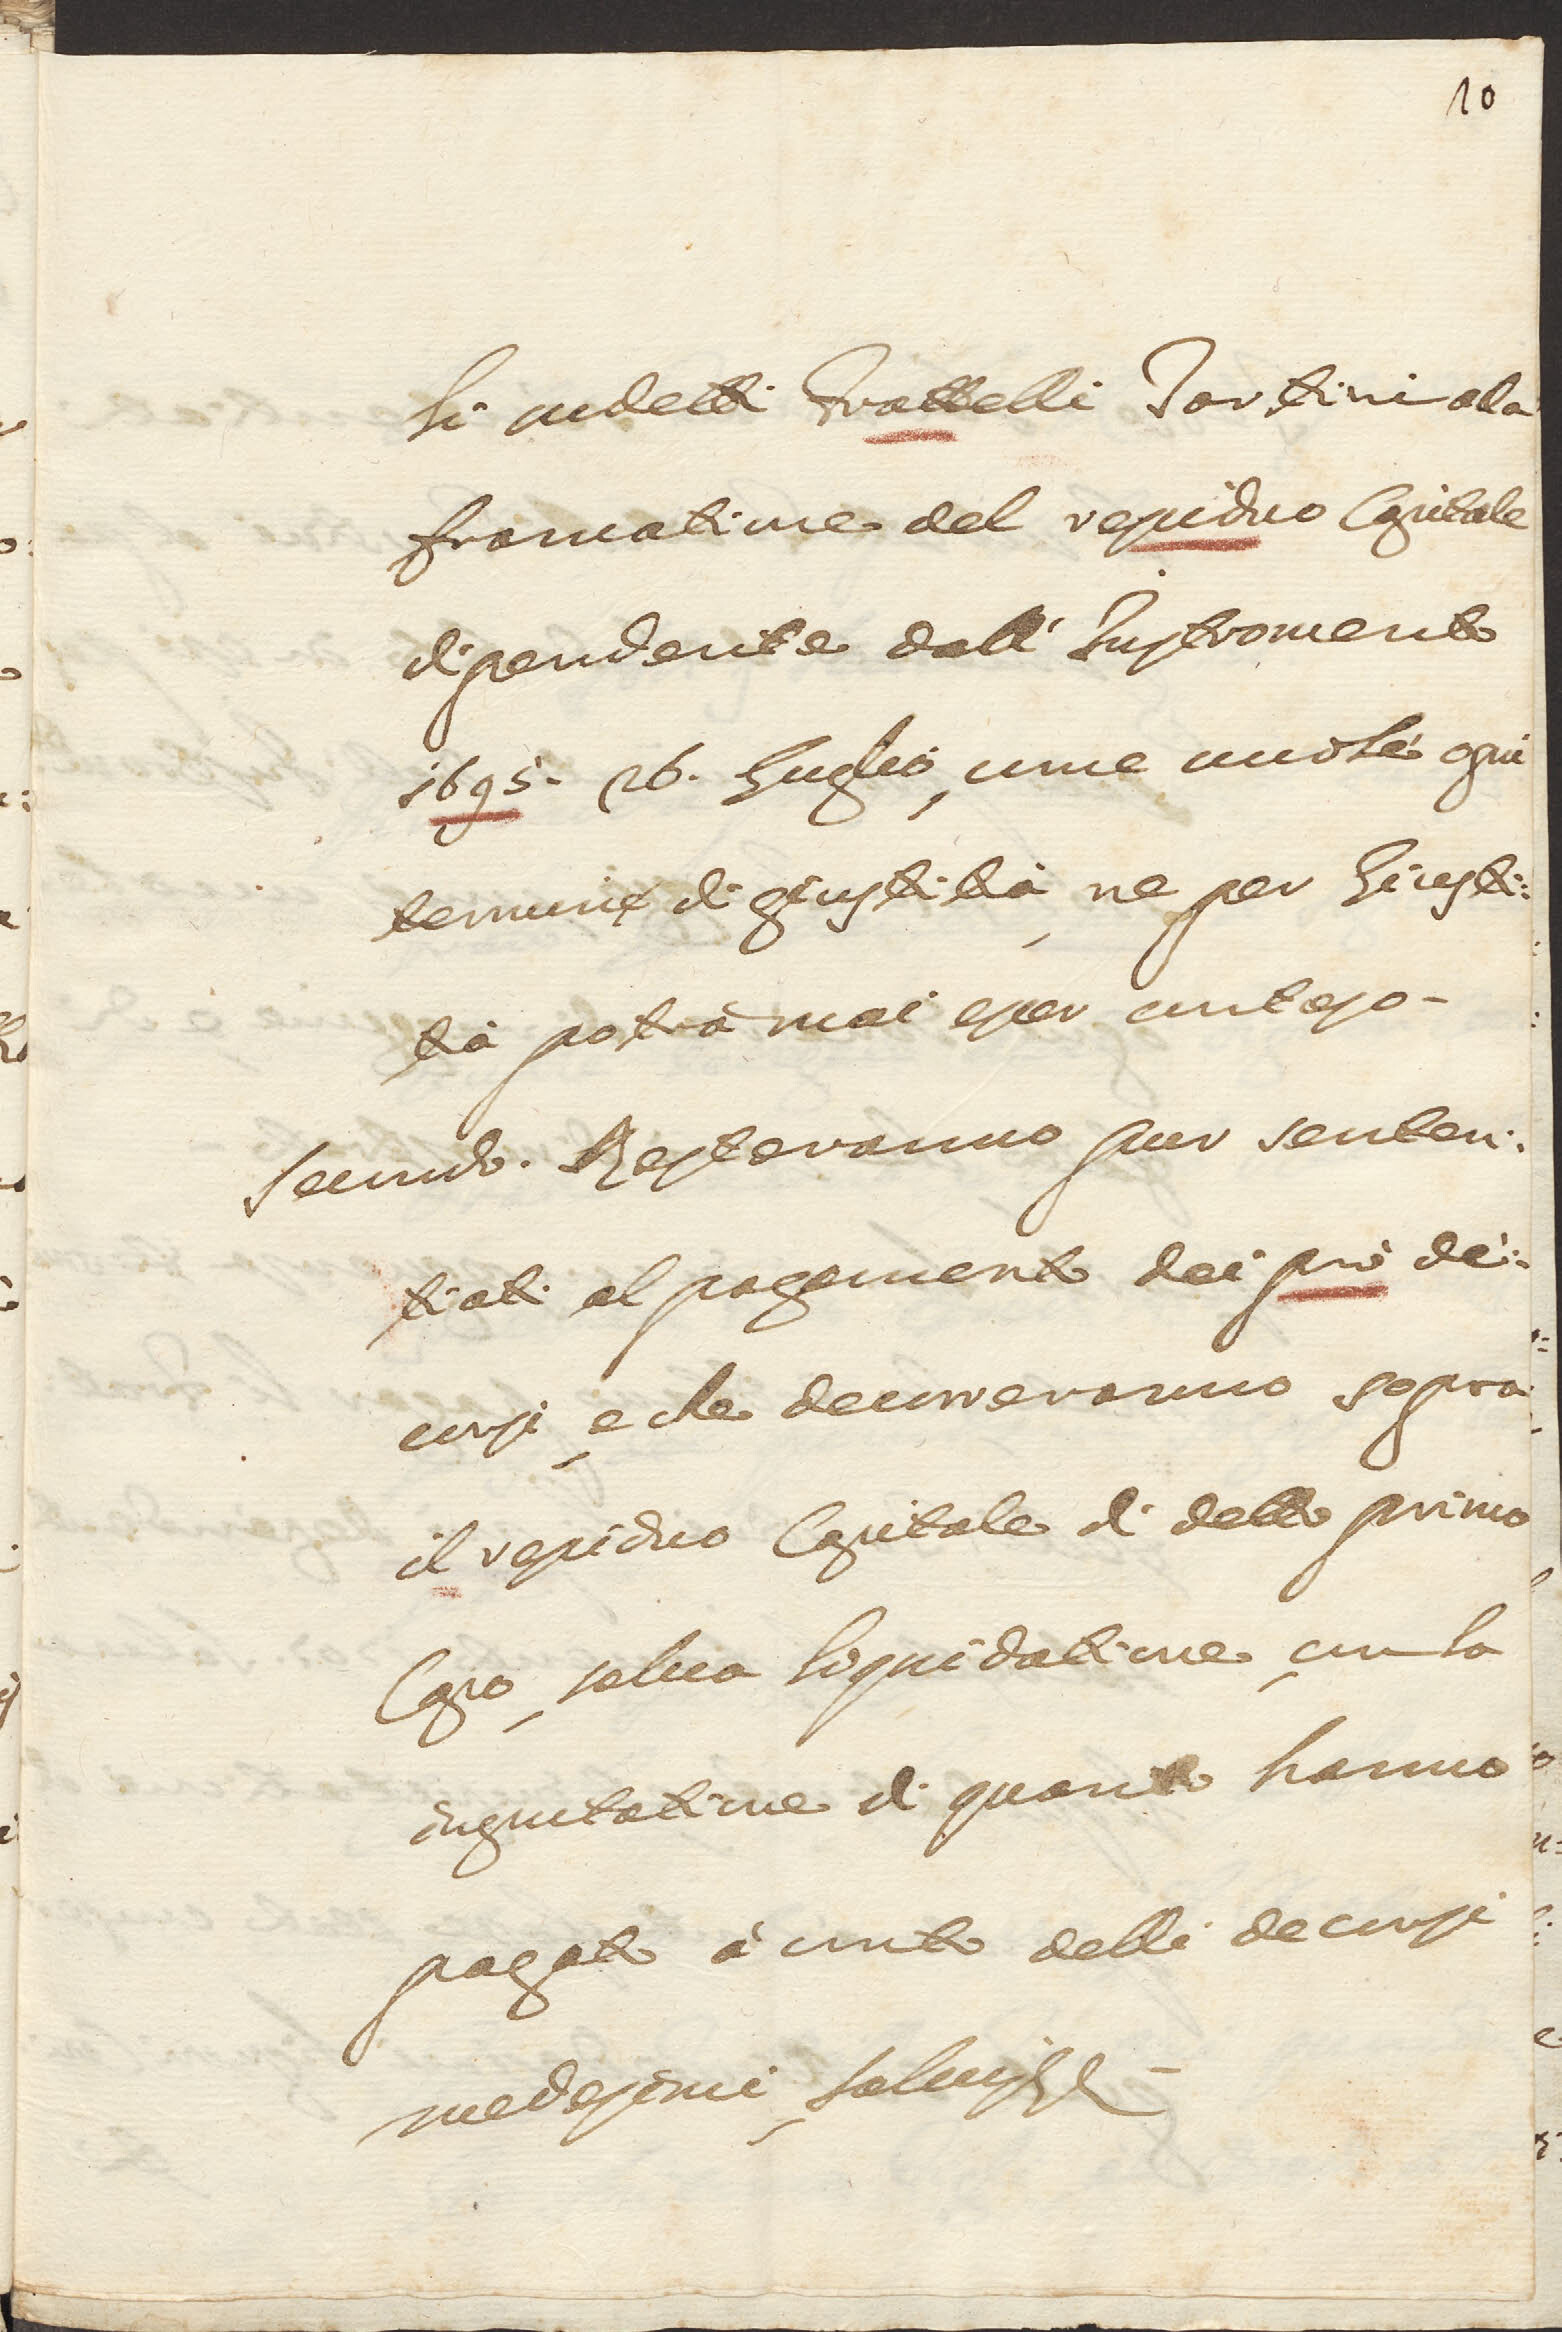 10
li sudetti Frattelli Tartini ala
francatione del residuo Capitale
dipendente dall' Instromento
1695. 26. Luglio, come uuole ogni
termine di giustitia, ne per Giusti:
tia potrà mai esser conteso -
Secondo. Resteranno pur senten:
tiati al pagamento dei prò de:
corsi, e che decorreranno sopra
il residuo Capitale di detto primo
Capo, salua liquidatione, con la
imputatione di quanto hanno
pagato à conto delli decorsi
medesimi,